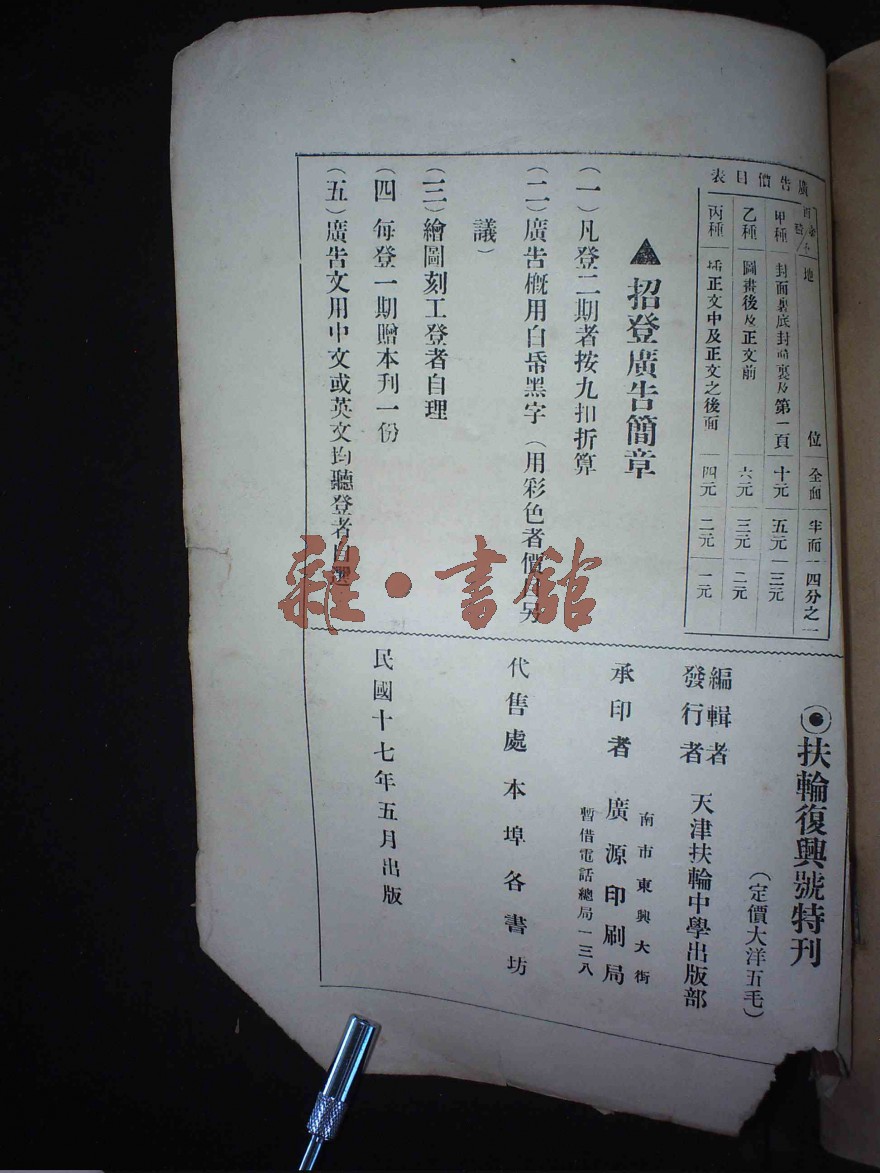 廣告價目表
地位 全面 半面 四分之一
甲種 封面裏底封面裏及第一頁 十元 五元 三元
乙種 圖畫後及正文前 六元 三元 二元
丙種 正文中及正文之後面 四元 二元 一元
▲招登廣告簡章
(一)凡登二期者按九扣折算
(二)廣告概用白帋黑字(用彩色者價目另
議)
(三)繪圖刻工登者自理
(四 每登一期贈本刊一份
(五)廣告文用中文或英文均聽登者自選
扶輪復興號特刊
(定價大洋五毛)
編輯者
發行者 天津扶輪中學出版部
南市東興大街
承印者 廣源印刷局
暫借電話總局一三八
代售處 本埠各書坊
民國十七年五月出版
雜·書館